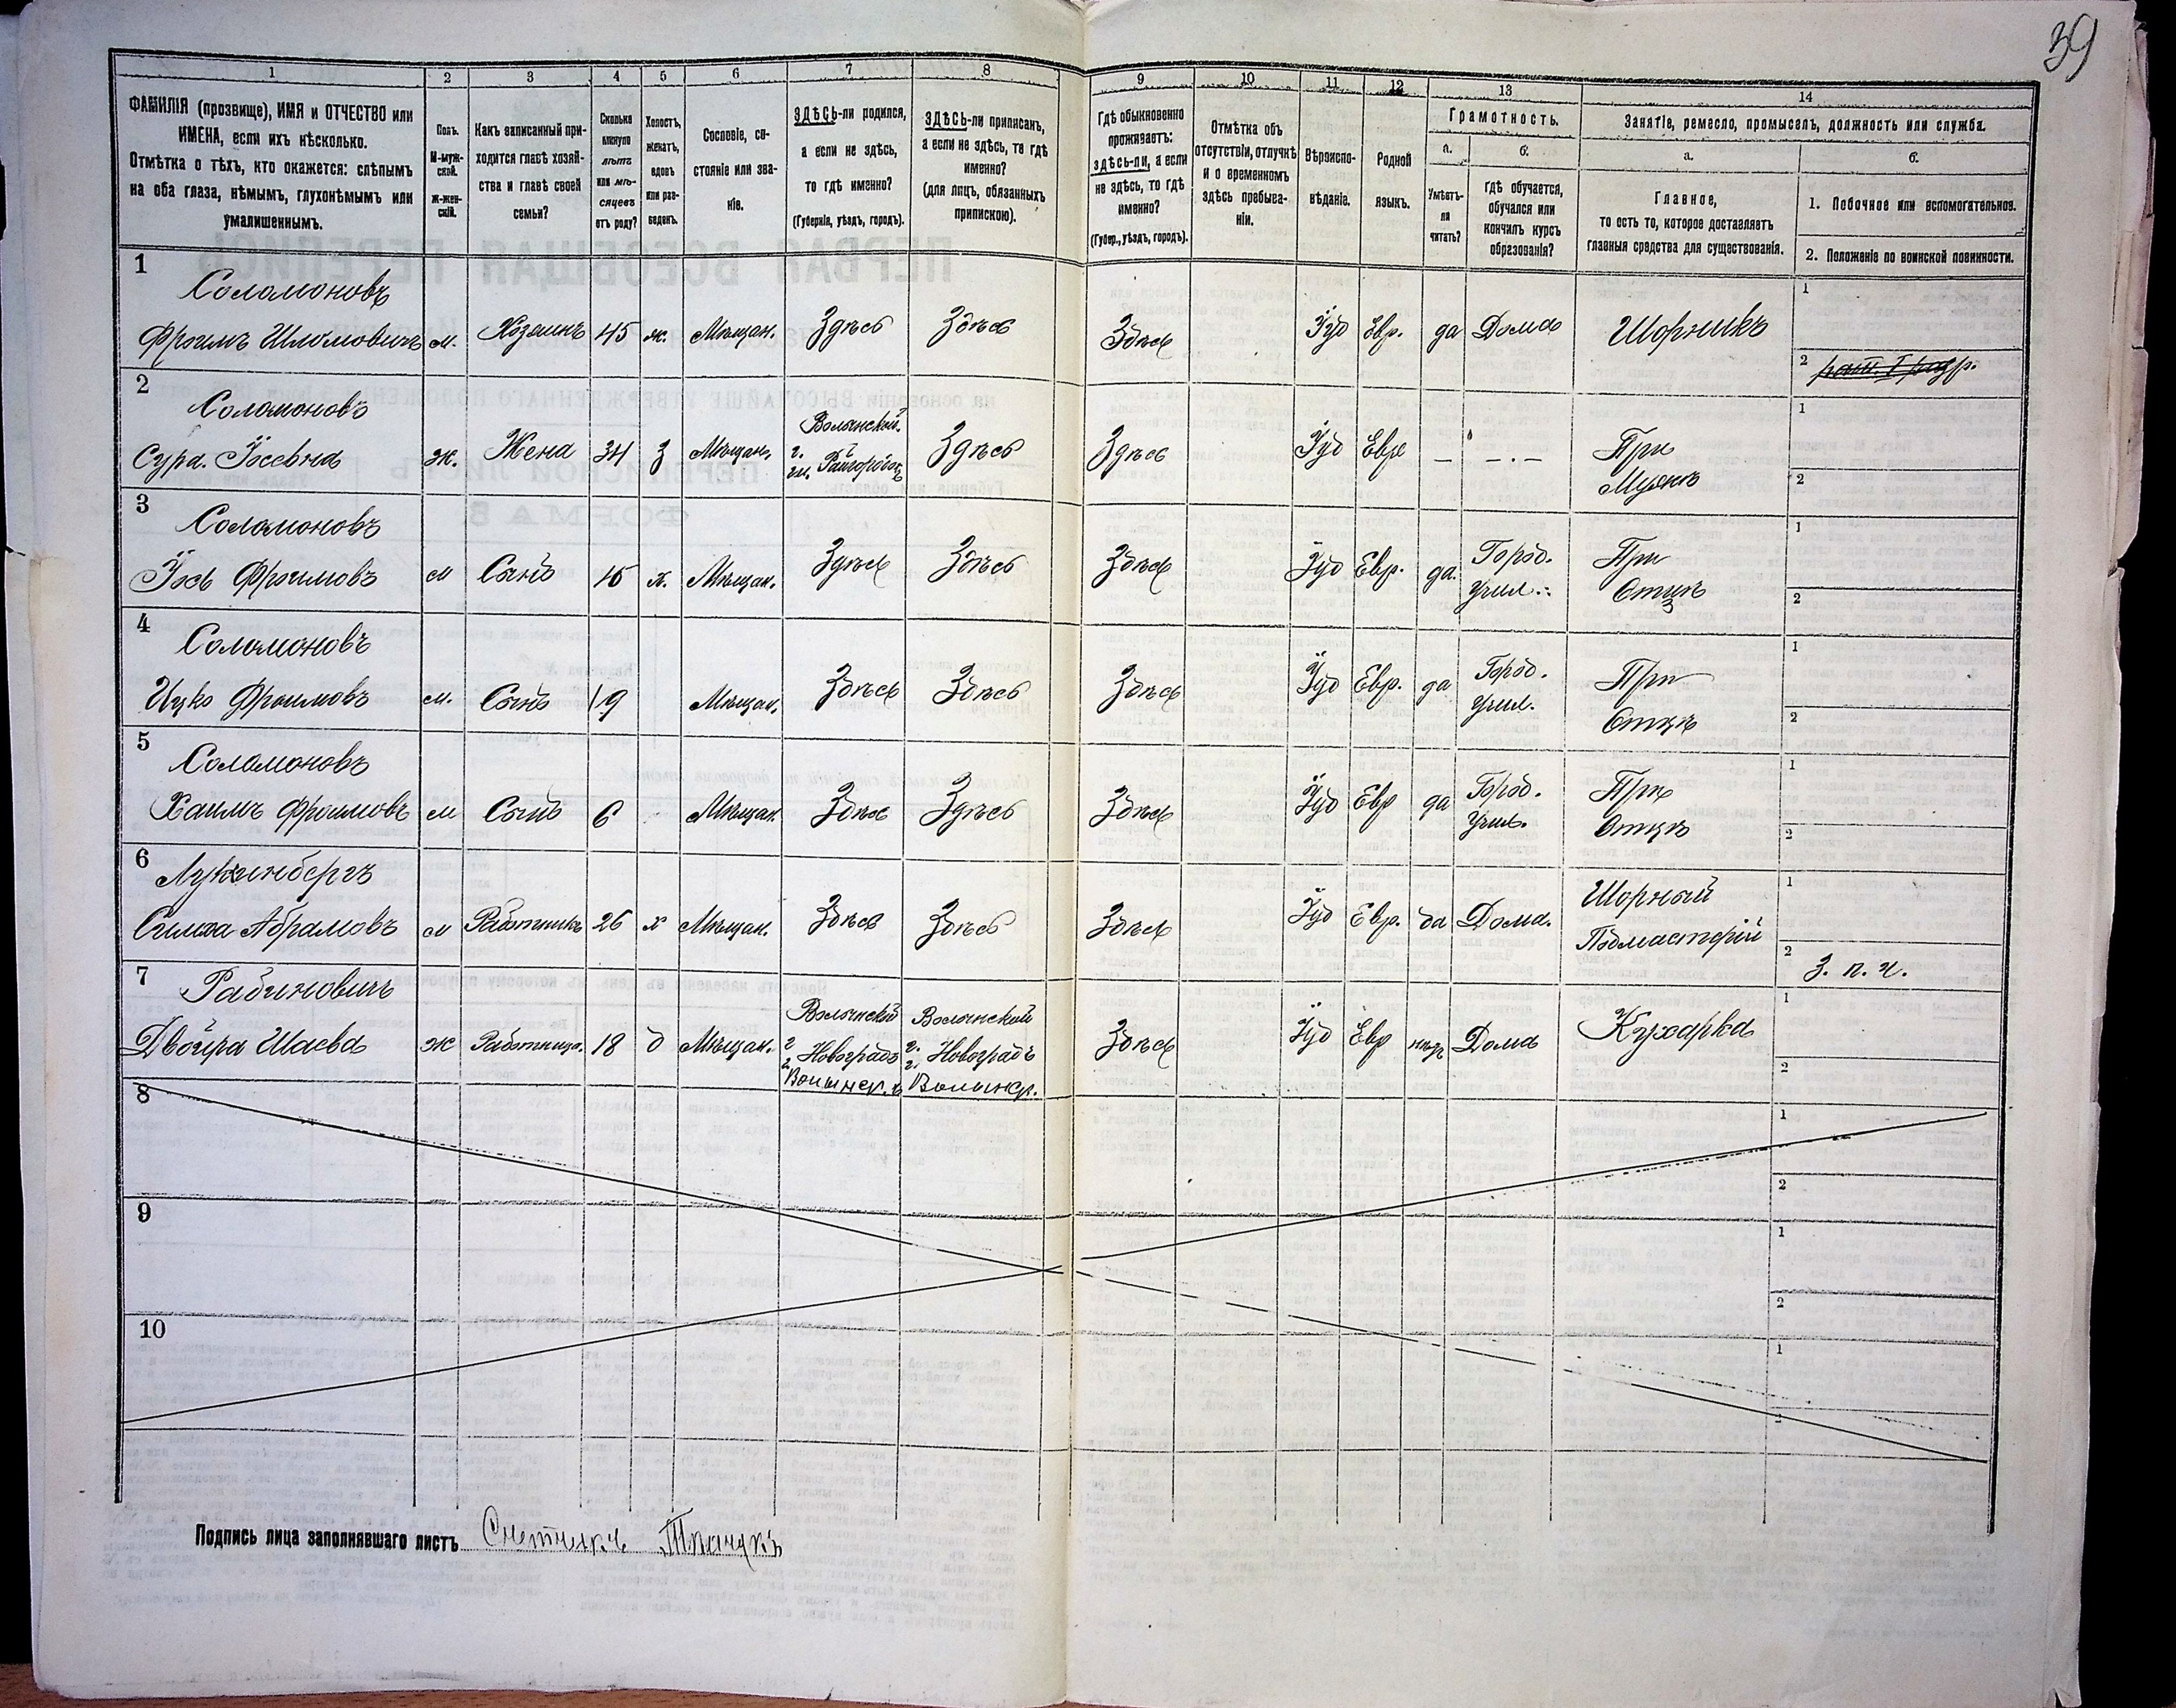 39
1 2 3 4 5 6 7 8 9 10 11 12 13 14
ФАМИЛІЯ (прозвище), ИМЯ и ОТЧЕСТВО или
ИМЕНА, если ихъ нѣсколько.
Отмѣтка о тѣхъ, кто окажется: слѣпымъ
на оба глаза, нѣмымъ, глухонѣмымъ или
умалишеннымъ.
Полъ.
М-муж-
ской.
Ж-жен-
скій.
Какъ записанный при-
ходится главѣ хозяй-
ства и главѣ своей
семьи?
Сколько
минуло
лѣтъ
или мѣ-
сяцевъ
отъ роду?
Холостъ,
женатъ,
вдовъ
или раз-
веденъ.
Сословіе, со-
стояніе или зва-
ніе.
ЗДѢСЬ-ли родился,
а если не здѣсь,
то гдѣ именно?
(Губернія, уѣздъ, городъ).
ЗДѢСЬ-ли приписанъ,
а если не здѣсь, то гдѣ
именно?
(для лицъ, обязанныхъ
припискою).
Гдѣ обыкновенно
проживаетъ:
здѣсь-ли, а если
не здѣсь, то гдѣ
именно?
(Губер., уѣздъ, городъ).
Отмѣтка объ
отсутствіи, отлучкѣ
и о временномъ
здѣсь пребыва-
ніи.
Вѣроиспо-
вѣданіе.
Родной
языкъ.
Грамотность.
а.
Умѣетъ-
ли
читать?
б.
Гдѣ обучается,
обучался или
кончилъ курсъ
образованія?
Занятіе, ремесло, промыселъ, должность или служба.
а.
Главное,
то есть то, которое доставляетъ
главныя средства для существованія.
б.
1. Побочное или вспомогательное.
2. Положеніе по воинской повинности.
1
Соломоновъ
Фроимъ Шломовичъ м. Хозяинъ 45 ж. Мѣщан. Здѣсь Здѣсь Здѣсь Іуд Евр. да Дома Шорникъ
1
2 ратн. I разр.
2
Соломоновъ
Сура Іосевна ж. Жена 34 з Мѣщан. Волынской г. м. Райгородок Здѣсь Здѣсь Іуд Евре — — . —
При
Мужѣ
1
2
3
Соломоновъ
Іось Фроимовъ м Сынъ 15 х. Мѣщан. Здѣсь Здѣсь Здѣсь Іуд Евр. да.
Город.
Учил.
При
Отцѣ
1
2
4
Соломоновъ
Ицко Фроимовъ м. Сынъ 19 Мѣщан. Здѣсь Здѣсь Здѣсь Іуд Евр. да
Город.
Учил.
При
Отцѣ
1
2
5
Соломоновъ
Хаимъ Фроимовъ м Сынъ 6 Мѣщан. Здѣсь Здѣсь Здѣсь Іуд Евр да
Город.
Учил.
При
Отцѣ
1
2
6
Абрамовъ м Работникъ 26 х Мѣщан. Здѣсь Здѣсь Здѣсь Іуд Евр. да Дома.
Шорный
Подмастерій
1
2 З. п. ч.
7
Рабиновичъ
Двойра Шаева ж Работница. 18 д Мѣщан.
Волынской
г Новоградъ
Волынск.
Волынской
г. Новоградъ
Волынск.
Здѣсь Іуд Евр Дома Кухарка
1
2
8
1
2
9
1
2
10
1
2
Подпись лица заполнявшаго листъ Счетчикъ Ткачукъ